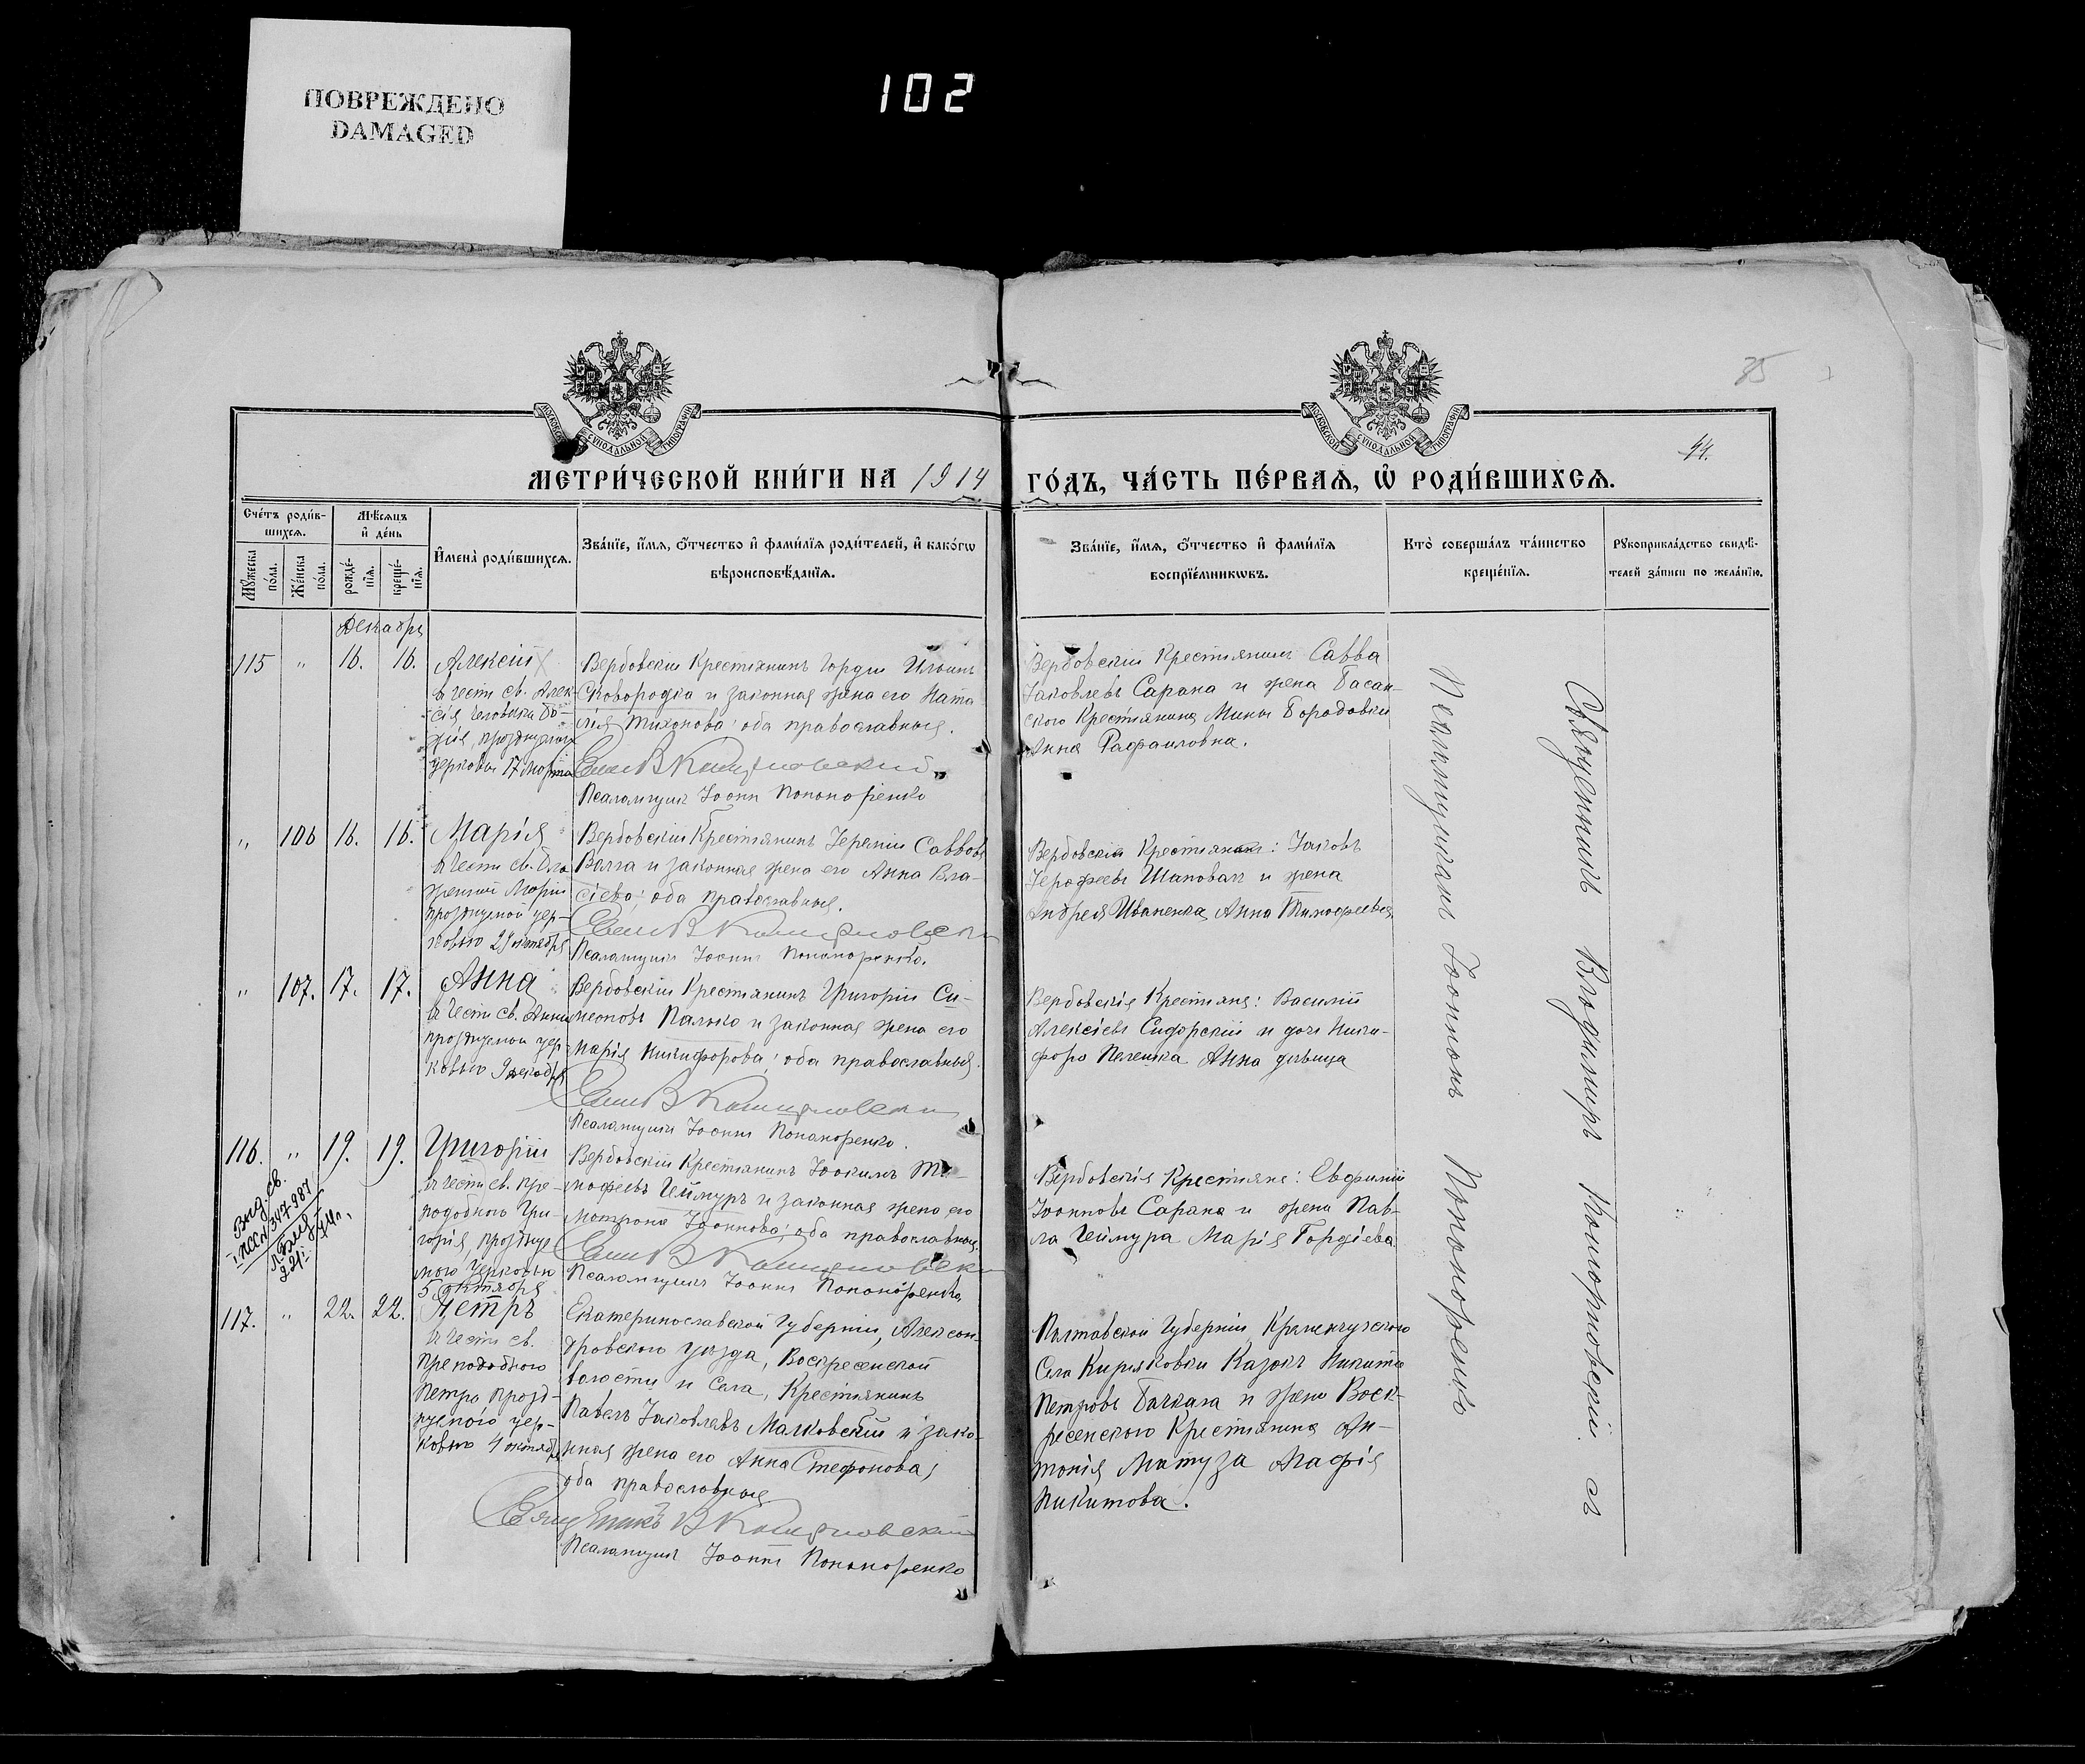 ПОВРЕЖДЕНО
DAMAGED
102
85
44.
МОСКОВСКОЙ СѴНОДАЛЬНОЙ ТИПОГРАФІИ
МОСКОВСКОЙ СѴНОДАЛЬНОЙ ТИПОГРАФІИ
МЕТРИ́ЧЕСКОЙ КНИ́ГИ НА 1914
ГО́ДЪ, ЧА́СТЬ ПЕ́РВАЯ, Ѡ РОДИ́ВШИХСЯ.
Сче́тъ роди́в-
шихся.
Мꙋжеска по́ла.
Же́нска по́ла.
Мѣ́сяцъ
и де́нь
рожде́-
нїя.
креще́-
нїя.
Имена̀ роди́вшихся.
Зва́нїе, и́мя, ѻ́тчество и фами́лїя роди́телей, и како́гѡ
вѣроисповѣ́данїя.
Зва́нїе, и́мя, ѻ́тчество и фами́лїя
воспрїе́мникѡвъ.
Кто̀ соверша́лъ та́инство
креще́нїя.
Рꙋкоприкла́дство свидѣ́-
телей за́писи по жела́нїю.
Декабрь
115 " 16. 16. Алексій
въ честь св. Алек-
сія человѣка Бо-
жія, празднуемаго
церковью 17 марта
Вербовскій Крестьянинъ Гордій Ильинъ
Сковородка и законная жена его Ната-
лія Тихонова; оба православные.
Псаломщикъ Іоаннъ Попоноренко
Вербовскій Крестьянинъ Савва
Іаковлевъ Сарана и жена Басан-
скаго Крестьянина Мины Бородавки
Анна Рафаиловна.
" 106 16. 16. Марія
въ честь св. Бла-
женной Маріи
празднуемой цер-
ковью 29 октября
Вербовскій Крестьянинъ Іеремія Саввовъ
Валга и законная жена его Анна Вла-
сіева; оба православные.
Псаломщикъ Іоаннъ Попоноренко.
Вербовскіе Крестьяне: Іаковъ
Іерофеевъ Шаповалъ и жена
Андрея Иваненка Анна Тимофеева
" 107. 17. 17. Анна
въ честь св. Анны
празднуемой цер-
ковью 9 декабря
Вербовскій Крестьянинъ Григорій Си-
меоновъ Палько и законная жена его
Марія Никифорова; оба православные.
Псаломщикъ Іоаннъ Попоноренко.
Вербовскіе Крестьяне: Василій
Алексіевъ Сидорскій и дочь Ники-
фора Пелешка Анна дѣвица
116. " 19. 19. Григорій
Выд. св.
въ честь св. пре-
подобнаго Гри-
горія, праздуе-
маго церковью
5 октября
Вербовскій Крестьянинъ Іоакимъ Ти-
мофеевъ Геймуръ и законная жена его
Матрона Іоаннова; оба православные.
Псаломщикъ Іоаннъ Попоноренко
Вербовскіе Крестьяне: Евфимій
Іоанновъ Сарана и жена Пав-
ла Геймура Марія Гордіева
117. " 22. 22. Петръ
въ честь св.
преподобнаго
Петра, празд-
нуемаго цер-
ковью 4 октября
Екатеринославской Губерніи, Алексан-
дровскаго уѣзда, Воскресенской
волости и села, Крестьянинъ
Павелъ Іаковлевъ Малковскій и зако-
нная жена его Анна Стефанова;
оба православные
Священникъ В Коширновскій
Псаломщикъ Іоаннъ Попоноренко
Полтавской Губерніи Кременчугскаго
Села Кириаковки Казакъ Никита
Петровъ Бачкала и жена Воск-
ресенскаго Крестьянина Ан-
тонія Матуза Агафія
Никитова.
Священникъ Владимиръ съ
Псаломщикомъ Іоанномъ Попоноренкомъ